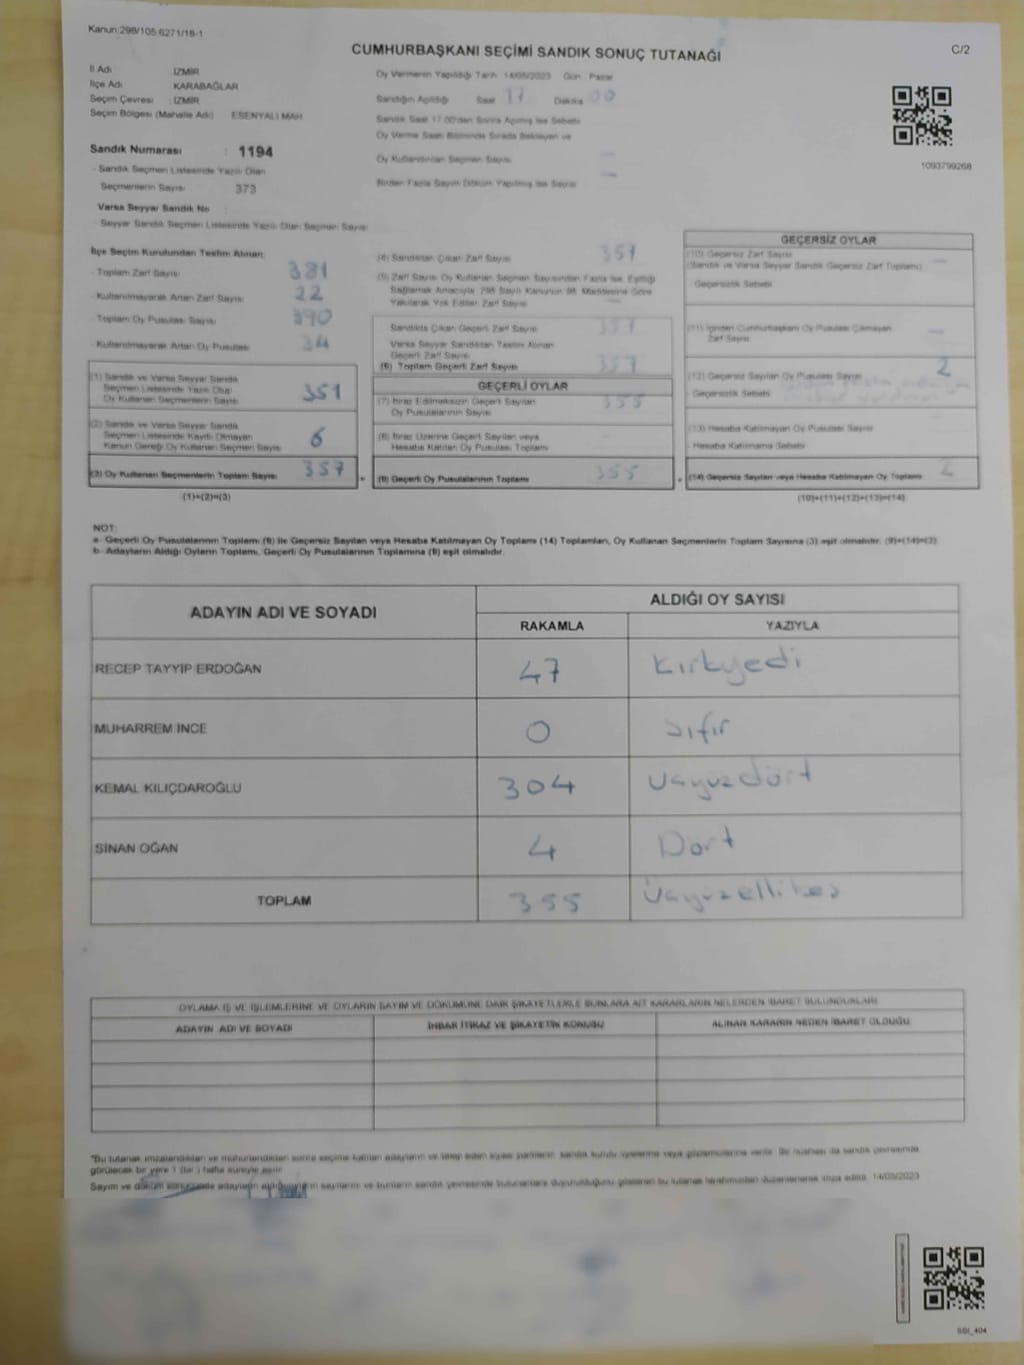 Kanun:298/105;6271/18-1
C/2
CUMHURBAŞKANI SEÇİMİ SANDIK SONUÇ TUTANAĞI
İl Adı : İZMİR
İlçe Adı : KARABAĞLAR
Seçim Çevresi : İZMİR
Seçim Bölgesi (Mahalle Adı) : ESENYALI MAH
Sandık Numarası : 1194
- Sandık Seçmen Listesinde Yazılı Olan
Seçmenlerin Sayısı : 373
Varsa Seyyar Sandık No :
- Seyyar Sandık Seçmen Listesinde Yazılı Olan Seçmen Sayısı
Oy Vermenin Yapıldığı Tarih 14/05/2023 Gün Pazar
Sandığın Açıldığı Saat 17 Dakika 00
Sandık Saat 17.00'den Sonra Açılmış İse Sebebi
Oy Verme Saati Bitiminde Sırada Bekleyen ve
Oy Kullandırılan Seçmen Sayısı —
Birden Fazla Sayım Döküm Yapılmış İse Sayısı —
1093799268
İlçe Seçim Kurulundan Teslim Alınan;
- Toplam Zarf Sayısı 381
- Kullanılmayarak Artan Zarf Sayısı 22
- Toplam Oy Pusulası Sayısı 390
- Kullanılmayarak Artan Oy Pusulası 34
(1) Sandık ve Varsa Seyyar Sandık
Seçmen Listesinde Yazılı Olup
Oy Kullanan Seçmenlerin Sayısı 351
(2) Sandık ve Varsa Seyyar Sandık
Seçmen Listesinde Kayıtlı Olmayan
Kanun Gereği Oy Kullanan Seçmen Sayısı 6
(3) Oy Kullanan Seçmenlerin Toplam Sayısı 357
(1)+(2)=(3)
(4) Sandıktan Çıkan Zarf Sayısı 357
(5) Zarf Sayısı Oy Kullanan Seçmen Sayısından Fazla İse, Eşitliği
Sağlamak Amacıyla 298 Sayılı Kanunun 98. Maddesine Göre
Yakılarak Yok Edilen Zarf Sayısı —
Sandıkta Çıkan Geçerli Zarf Sayısı 357
Varsa Seyyar Sandıktan Teslim Alınan
Geçerli Zarf Sayısı
(6) Toplam Geçerli Zarf Sayısı 357
GEÇERLİ OYLAR
(7) İtiraz Edilmeksizin Geçerli Sayılan
Oy Pusulalarının Sayısı 355
(8) İtiraz Üzerine Geçerli Sayılan veya
Hesaba Katılan Oy Pusulası Toplamı
(9) Geçerli Oy Pusulalarının Toplamı 355
GEÇERSİZ OYLAR
(10) Geçersiz Zarf Sayısı —
(Sandık ve Varsa Seyyar Sandık Geçersiz Zarf Toplamı)
- Geçersizlik Sebebi
(11) İçinden Cumhurbaşkanı Oy Pusulası Çıkmayan —
Zarf Sayısı
(12) Geçersiz Sayılan Oy Pusulası Sayısı 2
- Geçersizlik Sebebi
(13) Hesaba Katılmayan Oy Pusulası Sayısı
- Hesaba Katılmama Sebebi
(14) Geçersiz Sayılan veya Hesaba Katılmayan Oy Toplamı 2
(10)+(11)+(12)+(13)=(14)
NOT:
a- Geçerli Oy Pusulalarının Toplamı (9) ile Geçersiz Sayılan veya Hesaba Katılmayan Oy Toplamı (14) Toplamları, Oy Kullanan Seçmenlerin Toplam Sayısına (3) eşit olmalıdır. (9)+(14)=(3)
b- Adayların Aldığı Oyların Toplamı, Geçerli Oy Pusulalarının Toplamına (9) eşit olmalıdır.
ADAYIN ADI VE SOYADI
ALDIĞI OY SAYISI
RAKAMLA YAZIYLA
RECEP TAYYİP ERDOĞAN 47 Kırkyedi
MUHARREM İNCE 0 Sıfır
KEMAL KILIÇDAROĞLU 304 Üçyüzdört
SİNAN OĞAN 4 Dört
TOPLAM 355 Üçyüzellibeş
OYLAMA İŞ VE İŞLEMLERİNE VE OYLARIN SAYIM VE DÖKÜMÜNE DAİR ŞİKAYETLERLE BUNLARA AİT KARARLARIN NELERDEN İBARET BULUNDUKLARI
ADAYIN ADI VE SOYADI
İHBAR İTİRAZ VE ŞİKAYETİN KONUSU
ALINAN KARARIN NEDEN İBARET OLDUĞU
"Bu tutanak imzalandıktan ve mühürlendikten sonra seçime katılan adayların ve talep eden siyasi partilerin sandık kurulu üyelerine veya gözlemcilerine verilir. Bir nüshası da sandık çevresinde,
görülecek bir yere 1 (bir ) hafta süreyle asılır.
Sayım ve döküm sonucunda adayların aldığı oyların sayılarını ve bunların sandık çevresinde bulunanlara duyurulduğunu gösteren bu tutanak tarafımızdan düzenlenerek imza edildi. 14/05/2023
SSI_404